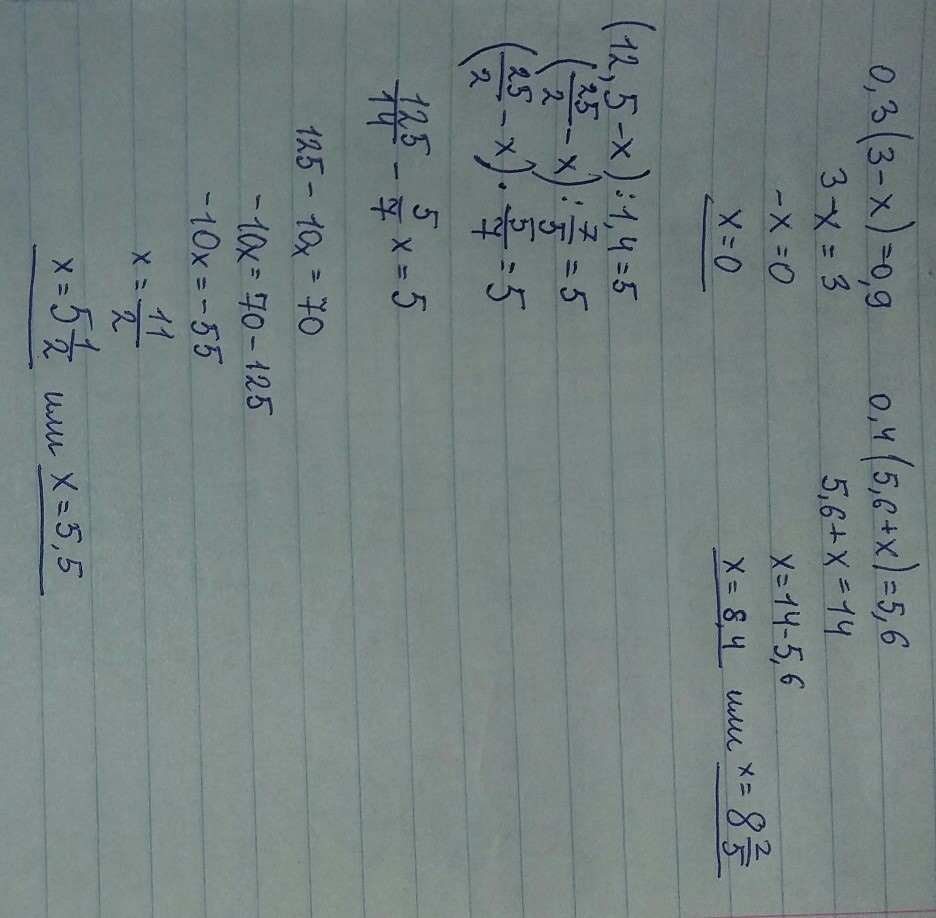 0,3(3-x)=0,9 0,4(5,6+x)=5,6
3-x=3 5,6+x=14
-x=0 x=14-5,6
x=0 x=8,4 или x=8 2/5
(12,5-x):1,4=5
(25/2-x):7/5=5
(25/2-x)·5/7=5
125/14-5/7x=5
125-10x=70
-10x=70-125
-10x=-55
x=11/2
x=5 1/2 или x=5,5